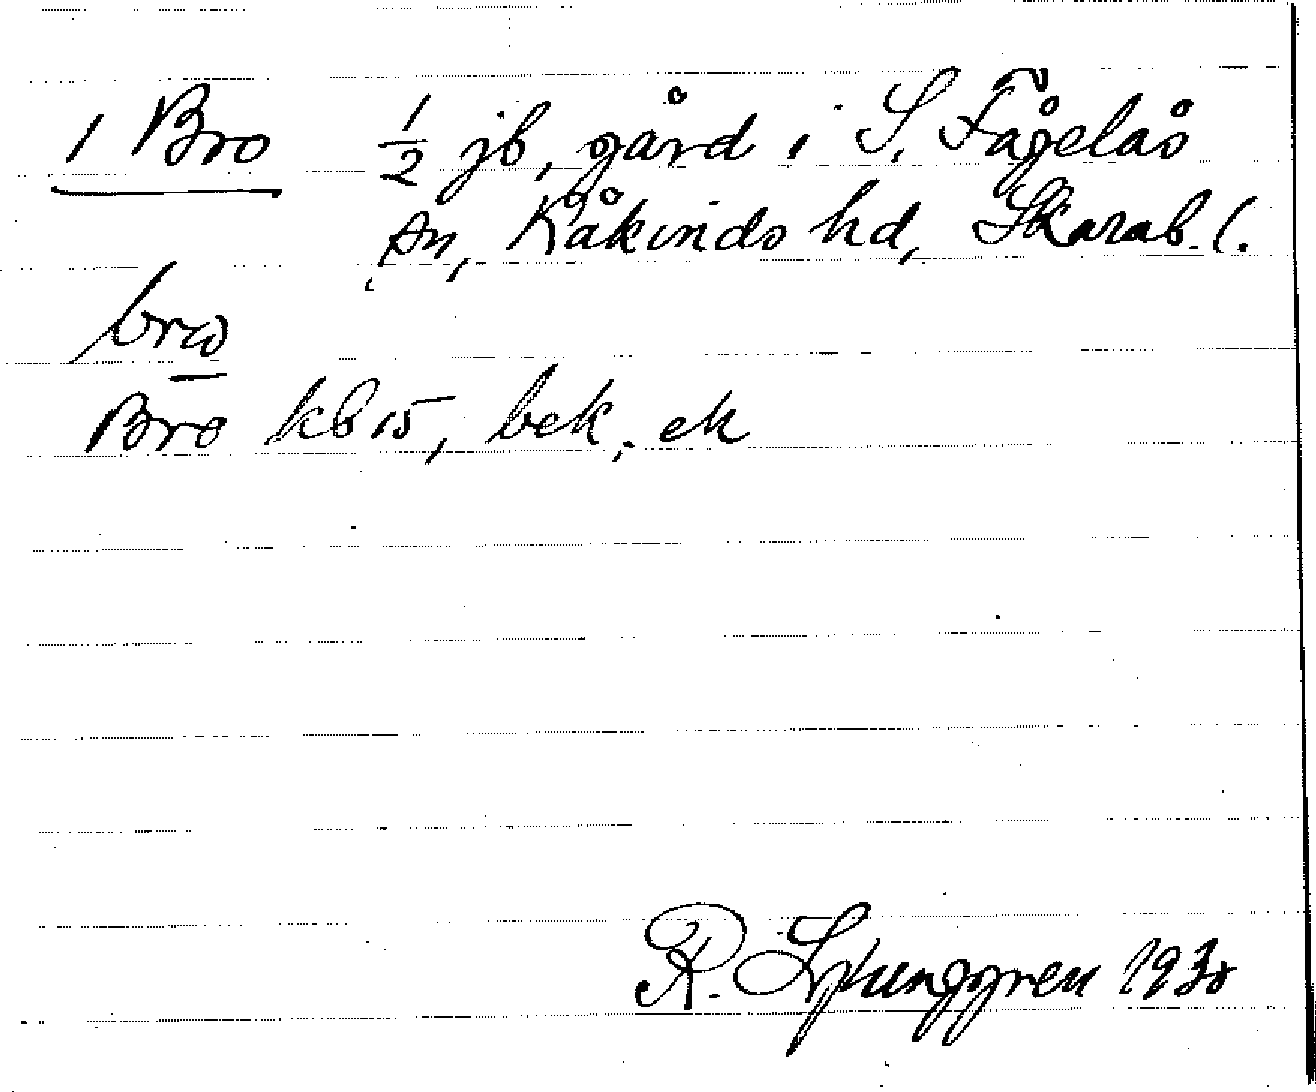 1 Bro ½ jb, gård i S. Fågelås
sn, Kåkinds hd, Skarab. l.
brω
Bro kb 15, bek, ek
R. Ljunggren 1930